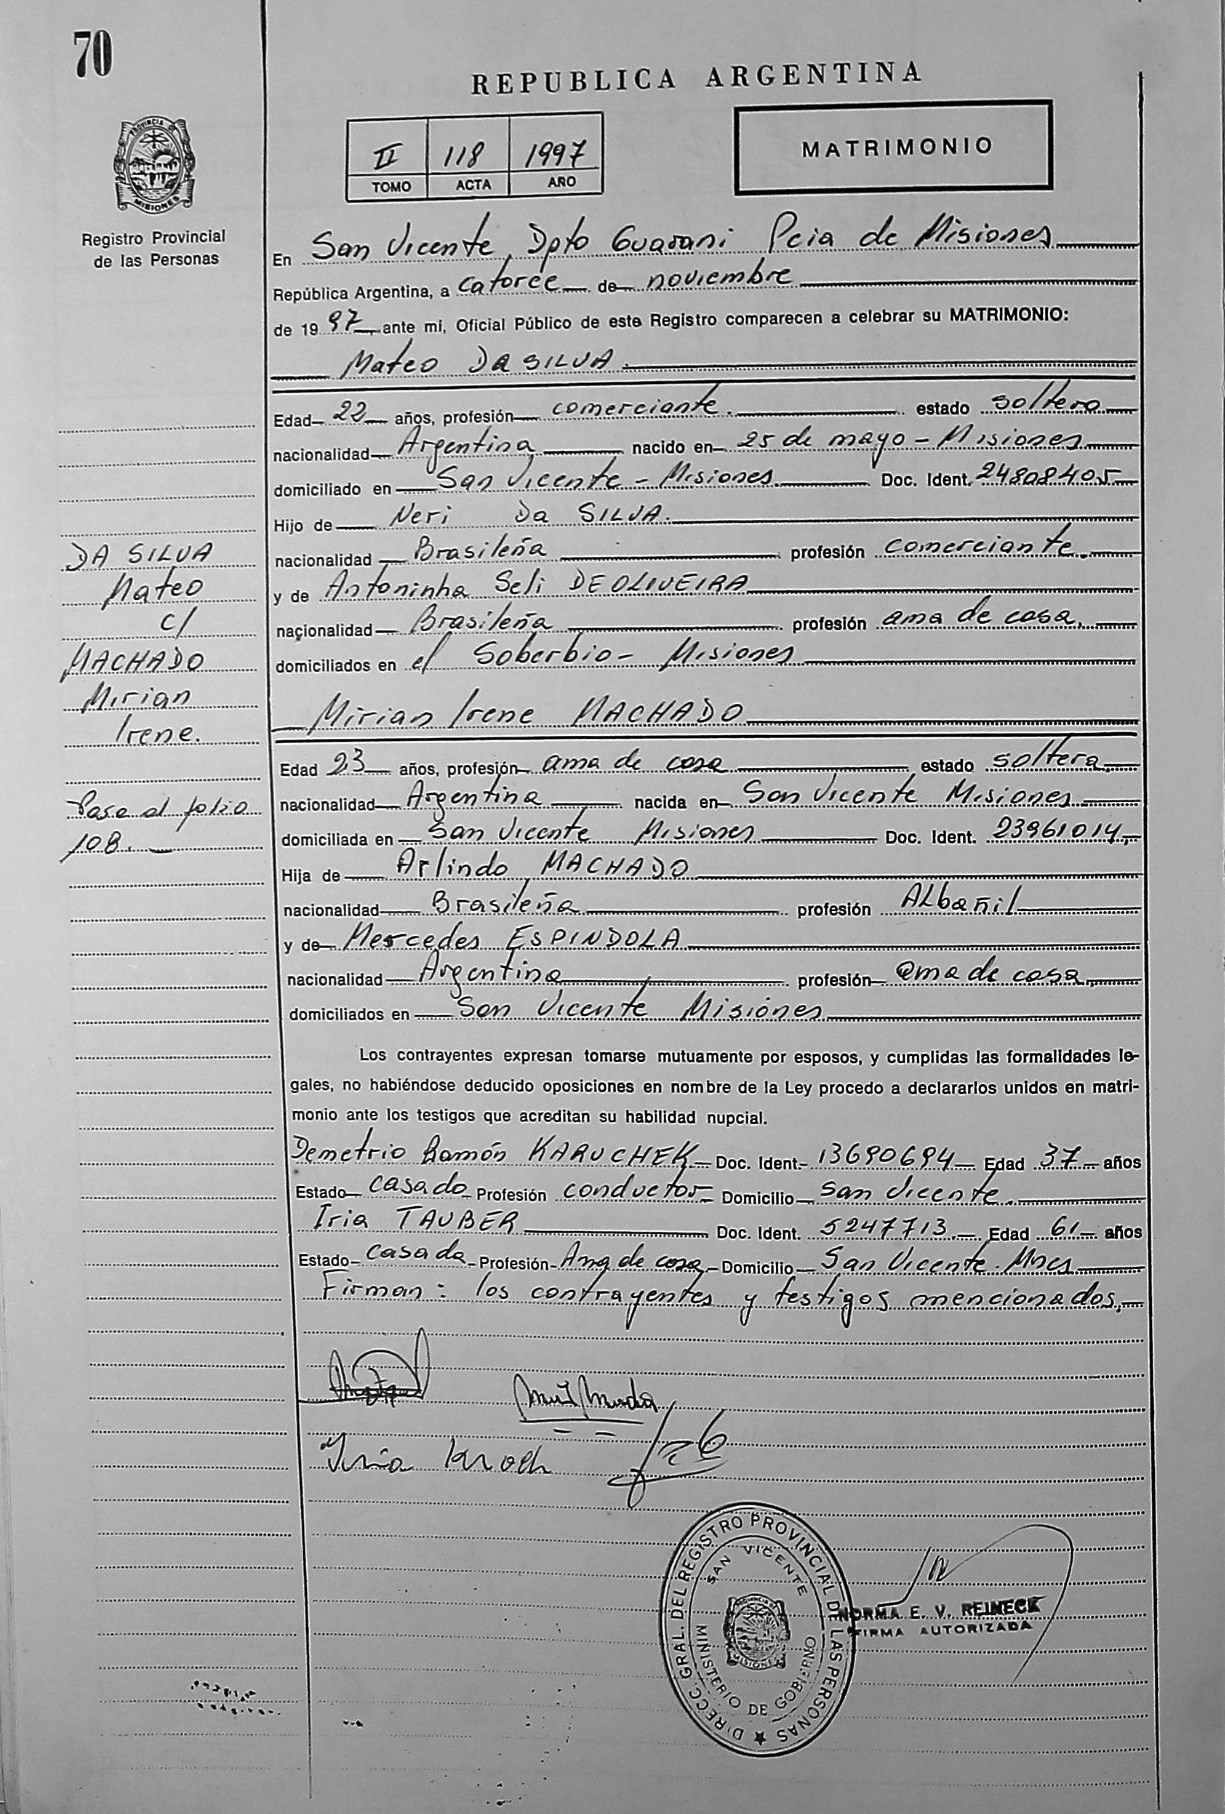 70
REPUBLICA ARGENTINA
II 118 1997
TOMO ACTA AÑO
MATRIMONIO
PROVINCIA DE MISIONES
Registro Provincial
de las Personas
En San Vicente, Dpto Guarani Pcia de Misiones
República Argentina, a catorce de noviembre
de 1997 ante mí, Oficial Público de este Registro comparecen a celebrar su MATRIMONIO:
Mateo DA SILVA.
Edad 22 años, profesión comerciante. estado soltero
nacionalidad Argentina nacido en 25 de mayo - Misiones
domiciliado en San Vicente - Misiones Doc. Ident. 24808405
Hijo de Neri Da SILVA.
nacionalidad Brasileña profesión comerciante.
y de Antoninha Seli DE OLIVEIRA
nacionalidad Brasileña profesión ama de casa,
domiciliados en el Soberbio - Misiones
DA SILVA
Mateo
c/
MACHADO
Mirian
Irene.
Mirian Irene MACHADO
Edad 23 años, profesión ama de casa estado soltera
nacionalidad Argentina nacida en San Vicente Misiones
domiciliada en San Vicente Misiones Doc. Ident. 23961014
Hija de Arlindo MACHADO
nacionalidad Brasileña profesión ALbañil
y de Mercedes ESPINDOLA
nacionalidad Argentina profesión ama de casa
domiciliados en San Vicente Misiones
Pasa al folio
108.
Los contrayentes expresan tomarse mutuamente por esposos, y cumplidas las formalidades le-
gales, no habiéndose deducido oposiciones en nombre de la Ley procedo a declararlos unidos en matri-
monio ante los testigos que acreditan su habilidad nupcial.
Demetrio Ramón KARUCHEK Doc. Ident. 13690694 Edad 37 años
Estado casado Profesión conductor Domicilio San Vicente.
Iria TAUBER Doc. Ident. 5247713. Edad 61 años
Estado casada Profesión Ama de casa Domicilio San Vicente. Mnes
Firman: los contrayentes y testigos mencionados.
Iria Kroth
DIRECC. GRAL. DEL REGISTRO PROVINCIAL DE LAS PERSONAS
SAN VICENTE
MINISTERIO DE GOBIERNO
MISIONES
NORMA E. V. REINECK
FIRMA AUTORIZADA